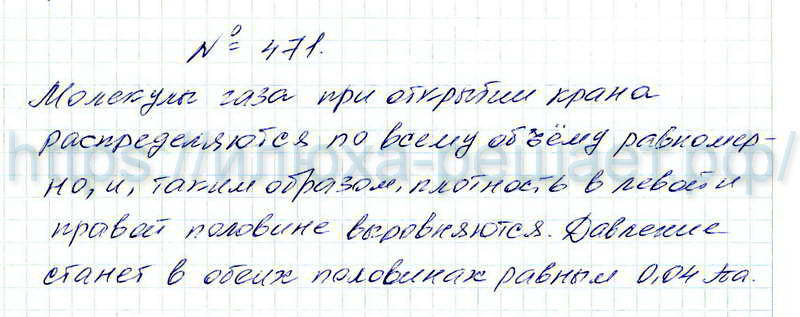 № 471.
Молекулы газа при открытии крана
распределяются по всему объёму равномер-
но, и, таким образом, плотность в левой и
правой половине выровняются. Давление
станет в обеих половинах равным 0,04 Па.